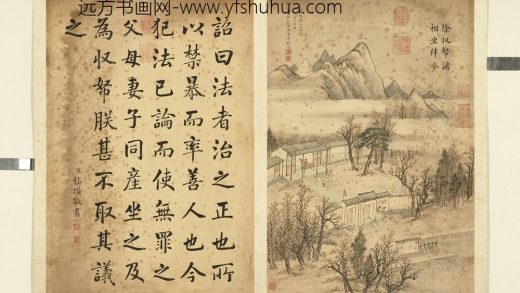 远方书画网-www.yfshuhua.com
除収帑諸
相坐律令
詔曰法者治之正也所
以禁暴而率善人也今
犯法已論而使無罪之
父母妻子同產坐之及
為収帑朕甚不取其議
之
臣嵇璜敬書